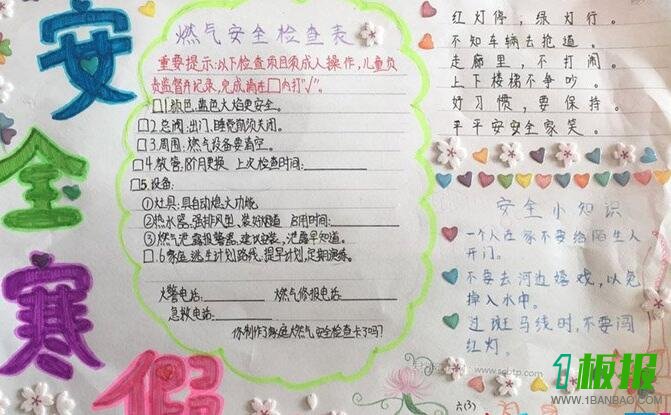 安全寒假
燃气安全检查表
重要提示:以下检查项目须成人操作,儿童负
责监督并记录,完成请在□内打"√"。
□1.颜色:蓝色火焰更安全。
□2.总阀:出门,睡觉前须关闭。
□3.周围:燃气设备要清空。
□4.软管:18个月更换 上次检查时间:
□5.设备:
①灶具:具自动熄火功能
②热水器:强排风型,装好烟道 启用时间:
③燃气泄露报警器:建议安装,泄露早知道。
□.6家庭逃生计划路线,提早计划,定期演练。
火警电话: 燃气修报电话:
急救电话:
你制作了家庭燃气安全检查卡了吗?
红灯停,绿灯行。
不知车辆去抢道。
走廊里,不打闹。
上下楼梯不争吵。
好习惯,要保持。
平平安安全家笑。
安全小知识
一个人在家不要给陌生人
开门。
不要去河边嬉戏,以免
掉入水中。
过斑马线时,不要闯
红灯。
六(3)
1板报
WWW.1BANBAO.COM